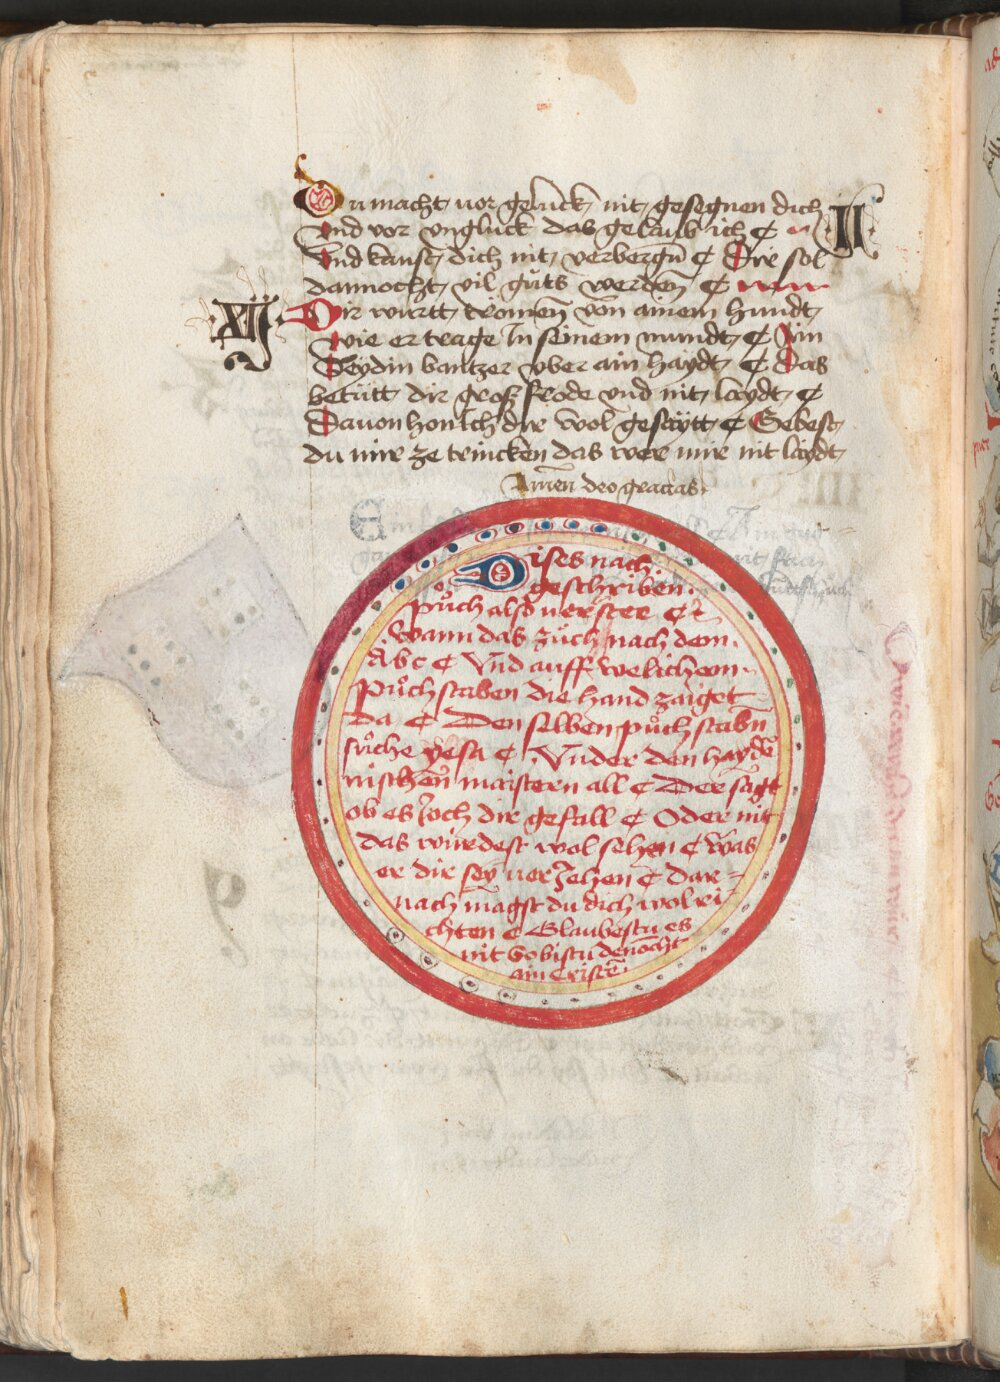 Du macht vor gelück nit gesegnen dich
Vnd vor vnglück das gelaub ich ¢
II
Vnd kanst dich nit verbergn̄ ¢ Dir sol
dannocht vil gůts werden ¢
XII
Dir württ trömen von ainem hundt
wie er trage In seinem mundt ¢ Ain
Seydin bantzer vber ain haydt ¢ Das
betütt dir groß frode vnd nit laydt ¢
Dauon hon Ich dir wol geseytt ¢ Gebest
du mir ze trincken das wer mir nit laydt
Amen deo gracias.
Dises nach
geschriben.
půch also verstee ¢
wann das zůch nach dem.
Abc ¢ Vnd auff welichem
Půchstaben die hand zaiget
Da ¢ Den selben půchstabn̄
sůche yesa ¢ Vnder den hayde
nischen maistern all ¢ Der sagt
ob es Joch dir gefall ¢ Oder nit
das würdest wol sehen ¢ Was
er dir sey ver Jehen ¢ Dar=
nach magst du dich wol ri
chten ¢ Glaubestu es
nit so bistu denocht
ain Cristē